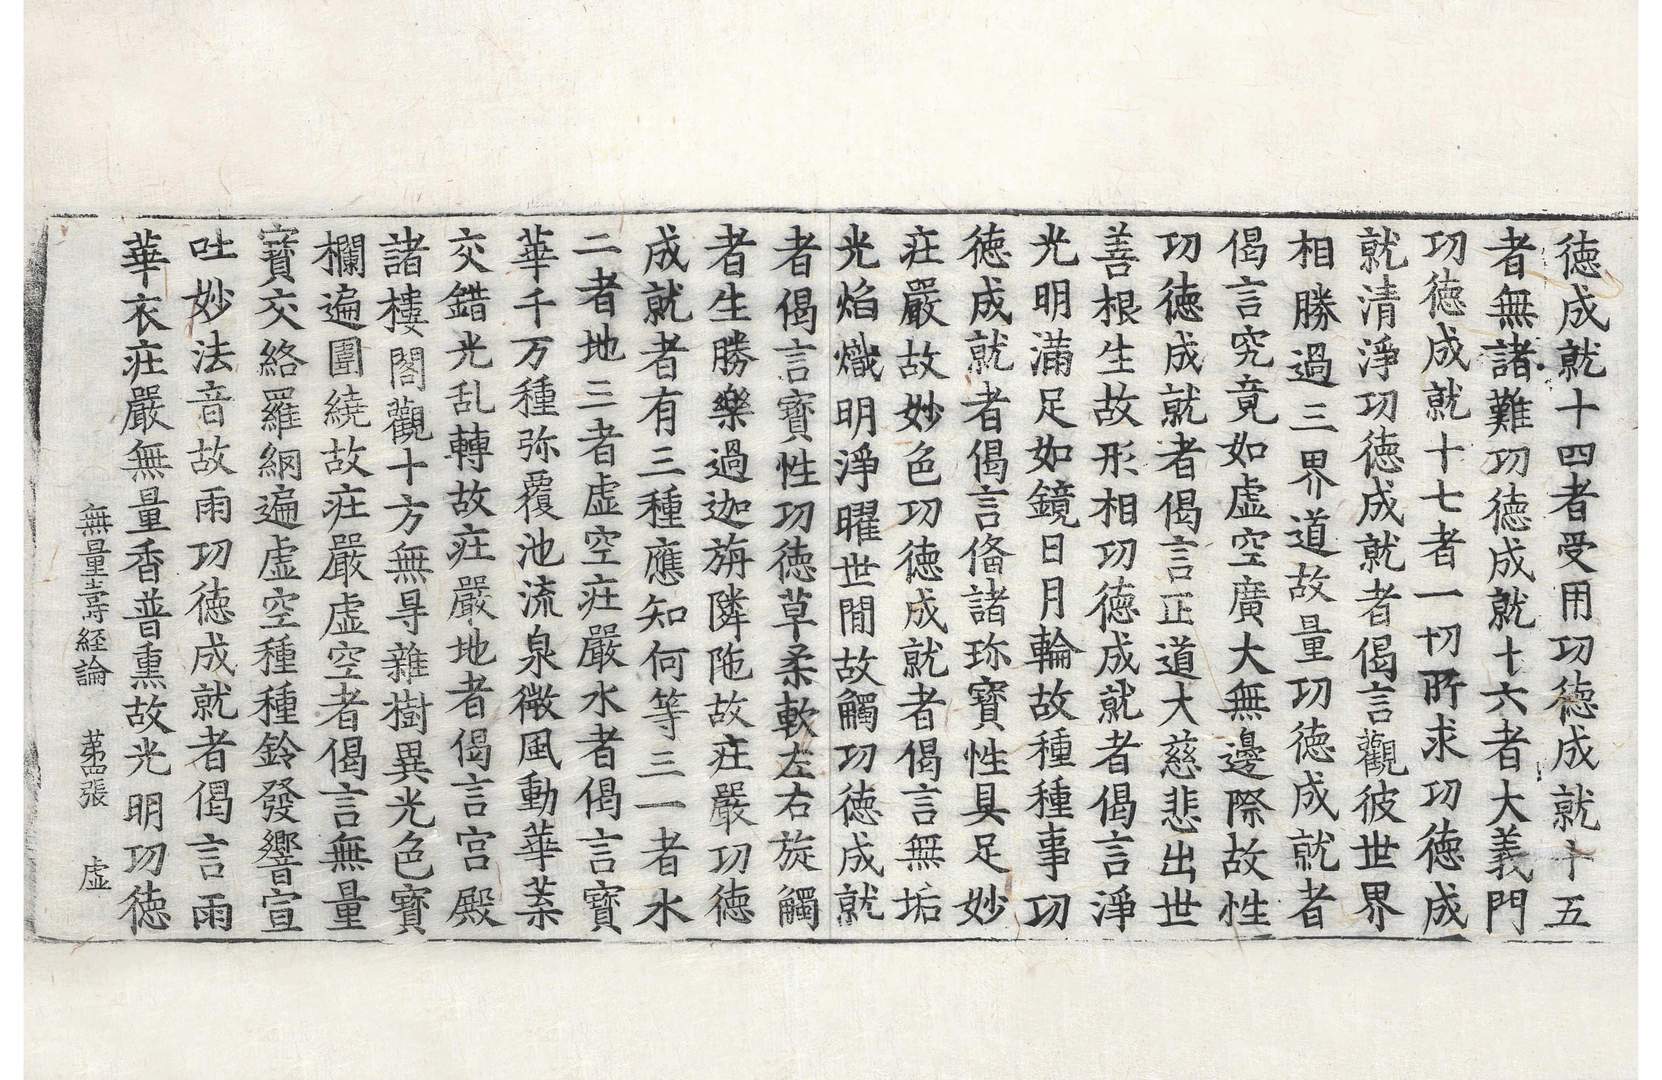 徳成就十四者受用功徳成就十五
者無諸難功徳成就十六者大義門
功徳成就十七者一切所求功徳成
就清淨功徳成就者偈言觀彼世界
相勝過三界道故量功徳成就者
偈言究竟如虚空廣大無邊際故性
功徳成就者偈言正道大慈悲出世
善根生故形相功徳成就者偈言淨
光明滿足如鏡日月輪故種種事功
徳成就者偈言俻諸珎寶性具足妙
莊嚴故妙色功徳成就者偈言無垢
光焰熾明淨曜世閒故觸功徳成就
者偈言寶性功徳草柔軟左右旋觸
者生勝樂過迦旃隣陁故莊嚴功徳
成就者有三種應知何等三一者水
二者地三者虚空莊嚴水者偈言寶
華千万種弥覆池流泉微風動華葉
交錯光乱轉故莊嚴地者偈言宮殿
諸樓閣觀十方無㝵雜樹異光色寶
欄遍圍繞故莊嚴虚空者偈言無量
寶交絡羅網遍虚空種種鈴發響宣
吐妙法音故雨功徳成就者偈言雨
華衣莊嚴無量香普熏故光明功徳
無量壽経論 苐四張 虚